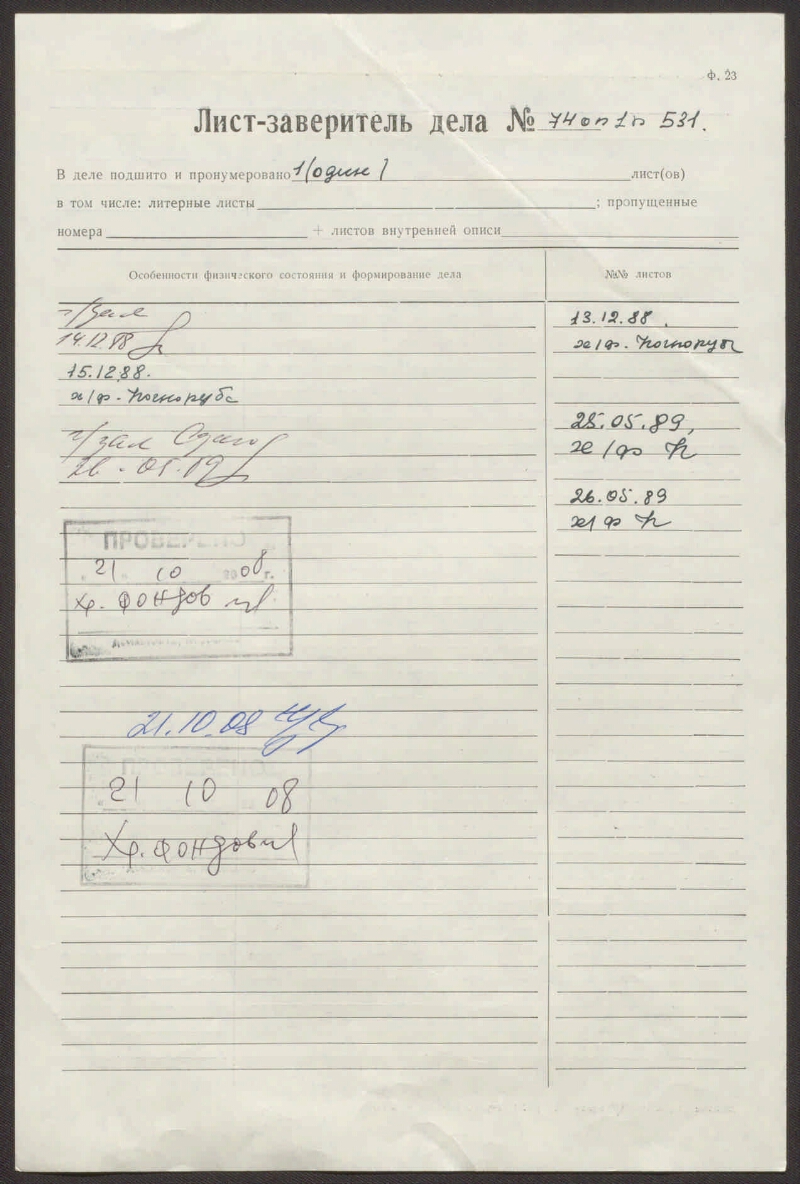 Ф. 23
Лист-заверитель дела № 74 оп 1 п 531.
В деле подшито и пронумеровано 1 (один) лист(ов)
в том числе: литерные листы ; пропущенные
номера + листов внутренней описи
Особенности физического состояния и формирование дела
№№ листов
ч/зал
14.12.88
15.12.88.
х/ф. Косноруба
ч/зал
26.05.89
13.12.88.
х/ф.
25.05.89,
х/ф К
26.05.89
х/ф К
ПРОВЕРЕНО
21 10 2008 г.
Хр. фондов
21.10.08
ПРОВЕРЕНО
21 10 08
Хр. фондов